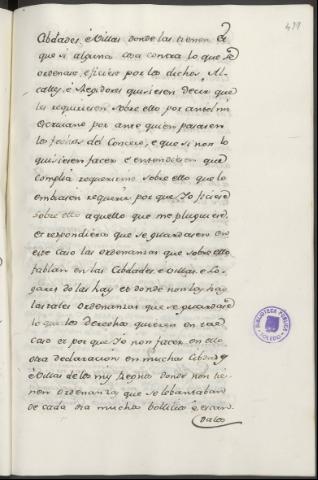 439
Cibdades, è Villas donde las tienen Et
que si alguna cosa contra lo que se
ordenare, è ficiere por los dichos Al-
calles, è Regidores quisiesen decir que
lo requiriesen sobre ello por ante mi
Escrivano por ante quien pasaren
los fechos del Concejo, e que si non lo
quisiesen facer et entendiesen que
complia requerirme sobre ello que lo
embiasen requerir por que Yo ficiese
sobre ello aquello que me pluguiese,
et respondieron que se guardasen en
este caso las ordenanzas que sobre ello
fablan en las Cibdades e Villas e Lo-
gares do las hay et donde non las hay
las tales ordenanzas que se guardase
lo que los derechos quieren en tal
caso et por que Yo non facer en ello
otra declaracion en muchas Cibdades
è Villas de los mis Regnos donde non tie-
nen ordenanza que se lebantaban
de cada dia muchos bollicios è, escan-
dalos
BIBLIOTECA PUBLICA
TOLEDO